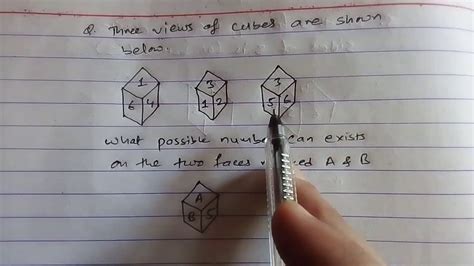 Q. Three views of cubes are shown
below.
1
6 4
3
1 2
3
5 6
What possible number can exists
on the two faces A & B
A
B 5